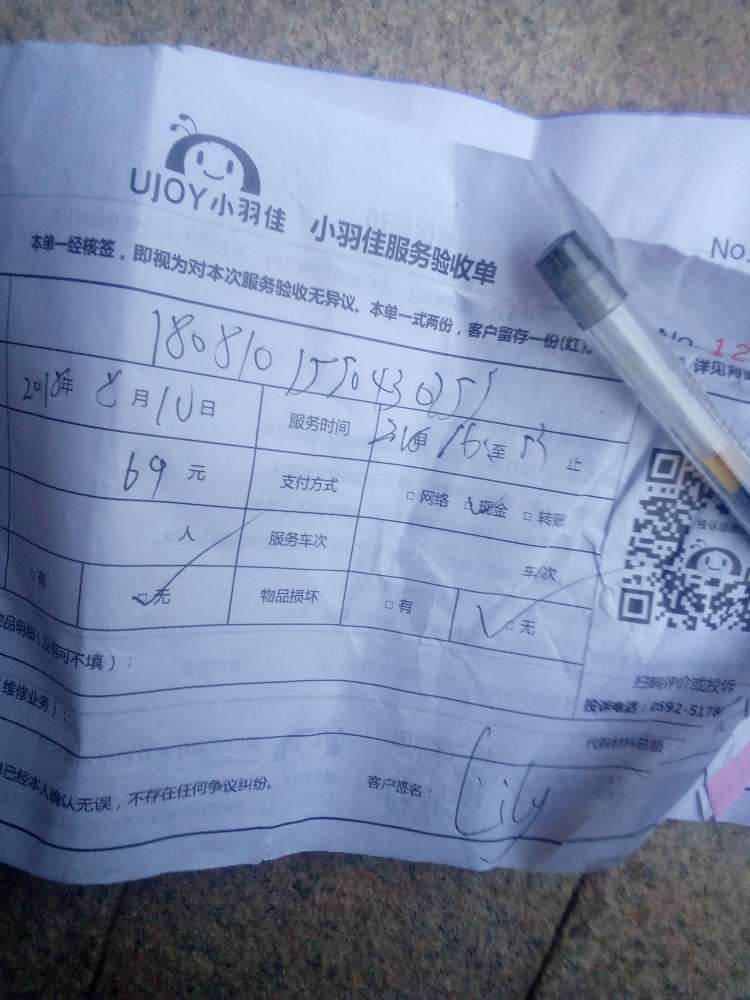 UJOY小羽佳 小羽佳服务验收单
No.
本单一经核签，即视为对本次服务验收无异议。本单一式两份，客户留存一份(红)。
No 12
详见背
2018年 8月10日 服务时间 至 止
69 元 支付方式 □网络 □现金 □转账
人 服务车次 车/次
□有 □无 物品损坏 □有 □无
品明细(没有可不填)：
扫码评价或投诉
维修业务)：
投诉电话：0592-5178
代购材料总额 元
已经本人确认无误，不存在任何争议纠纷。 客户签名： Lily